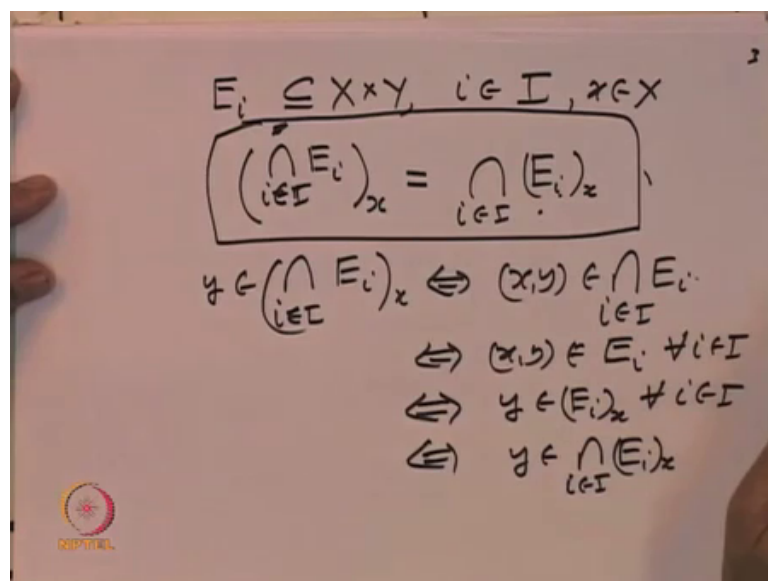 3
E_i ⊆ X×Y, i∈I, x∈X
(⋂_{i∈I} E_i)_x = ⋂_{i∈I} (E_i)_x
y∈(⋂_{i∈I} E_i)_x ⇔ (x,y) ∈ ⋂_{i∈I} E_i
⇔ (x,y) ∈ E_i ∀i∈I
⇔ y∈(E_i)_x ∀i∈I
⇔ y∈ ⋂_{i∈I} (E_i)_x
NPTEL